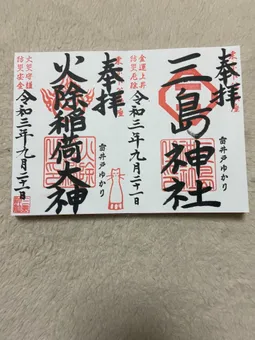 奉拝
三島神社
雷井戸ゆかり
令和三年九月二十一日
金運上昇
防災厄除
奉拝
火除稲荷大神
雷井戸ゆかり
令和三年九月二十一日
火災守護
防災安全